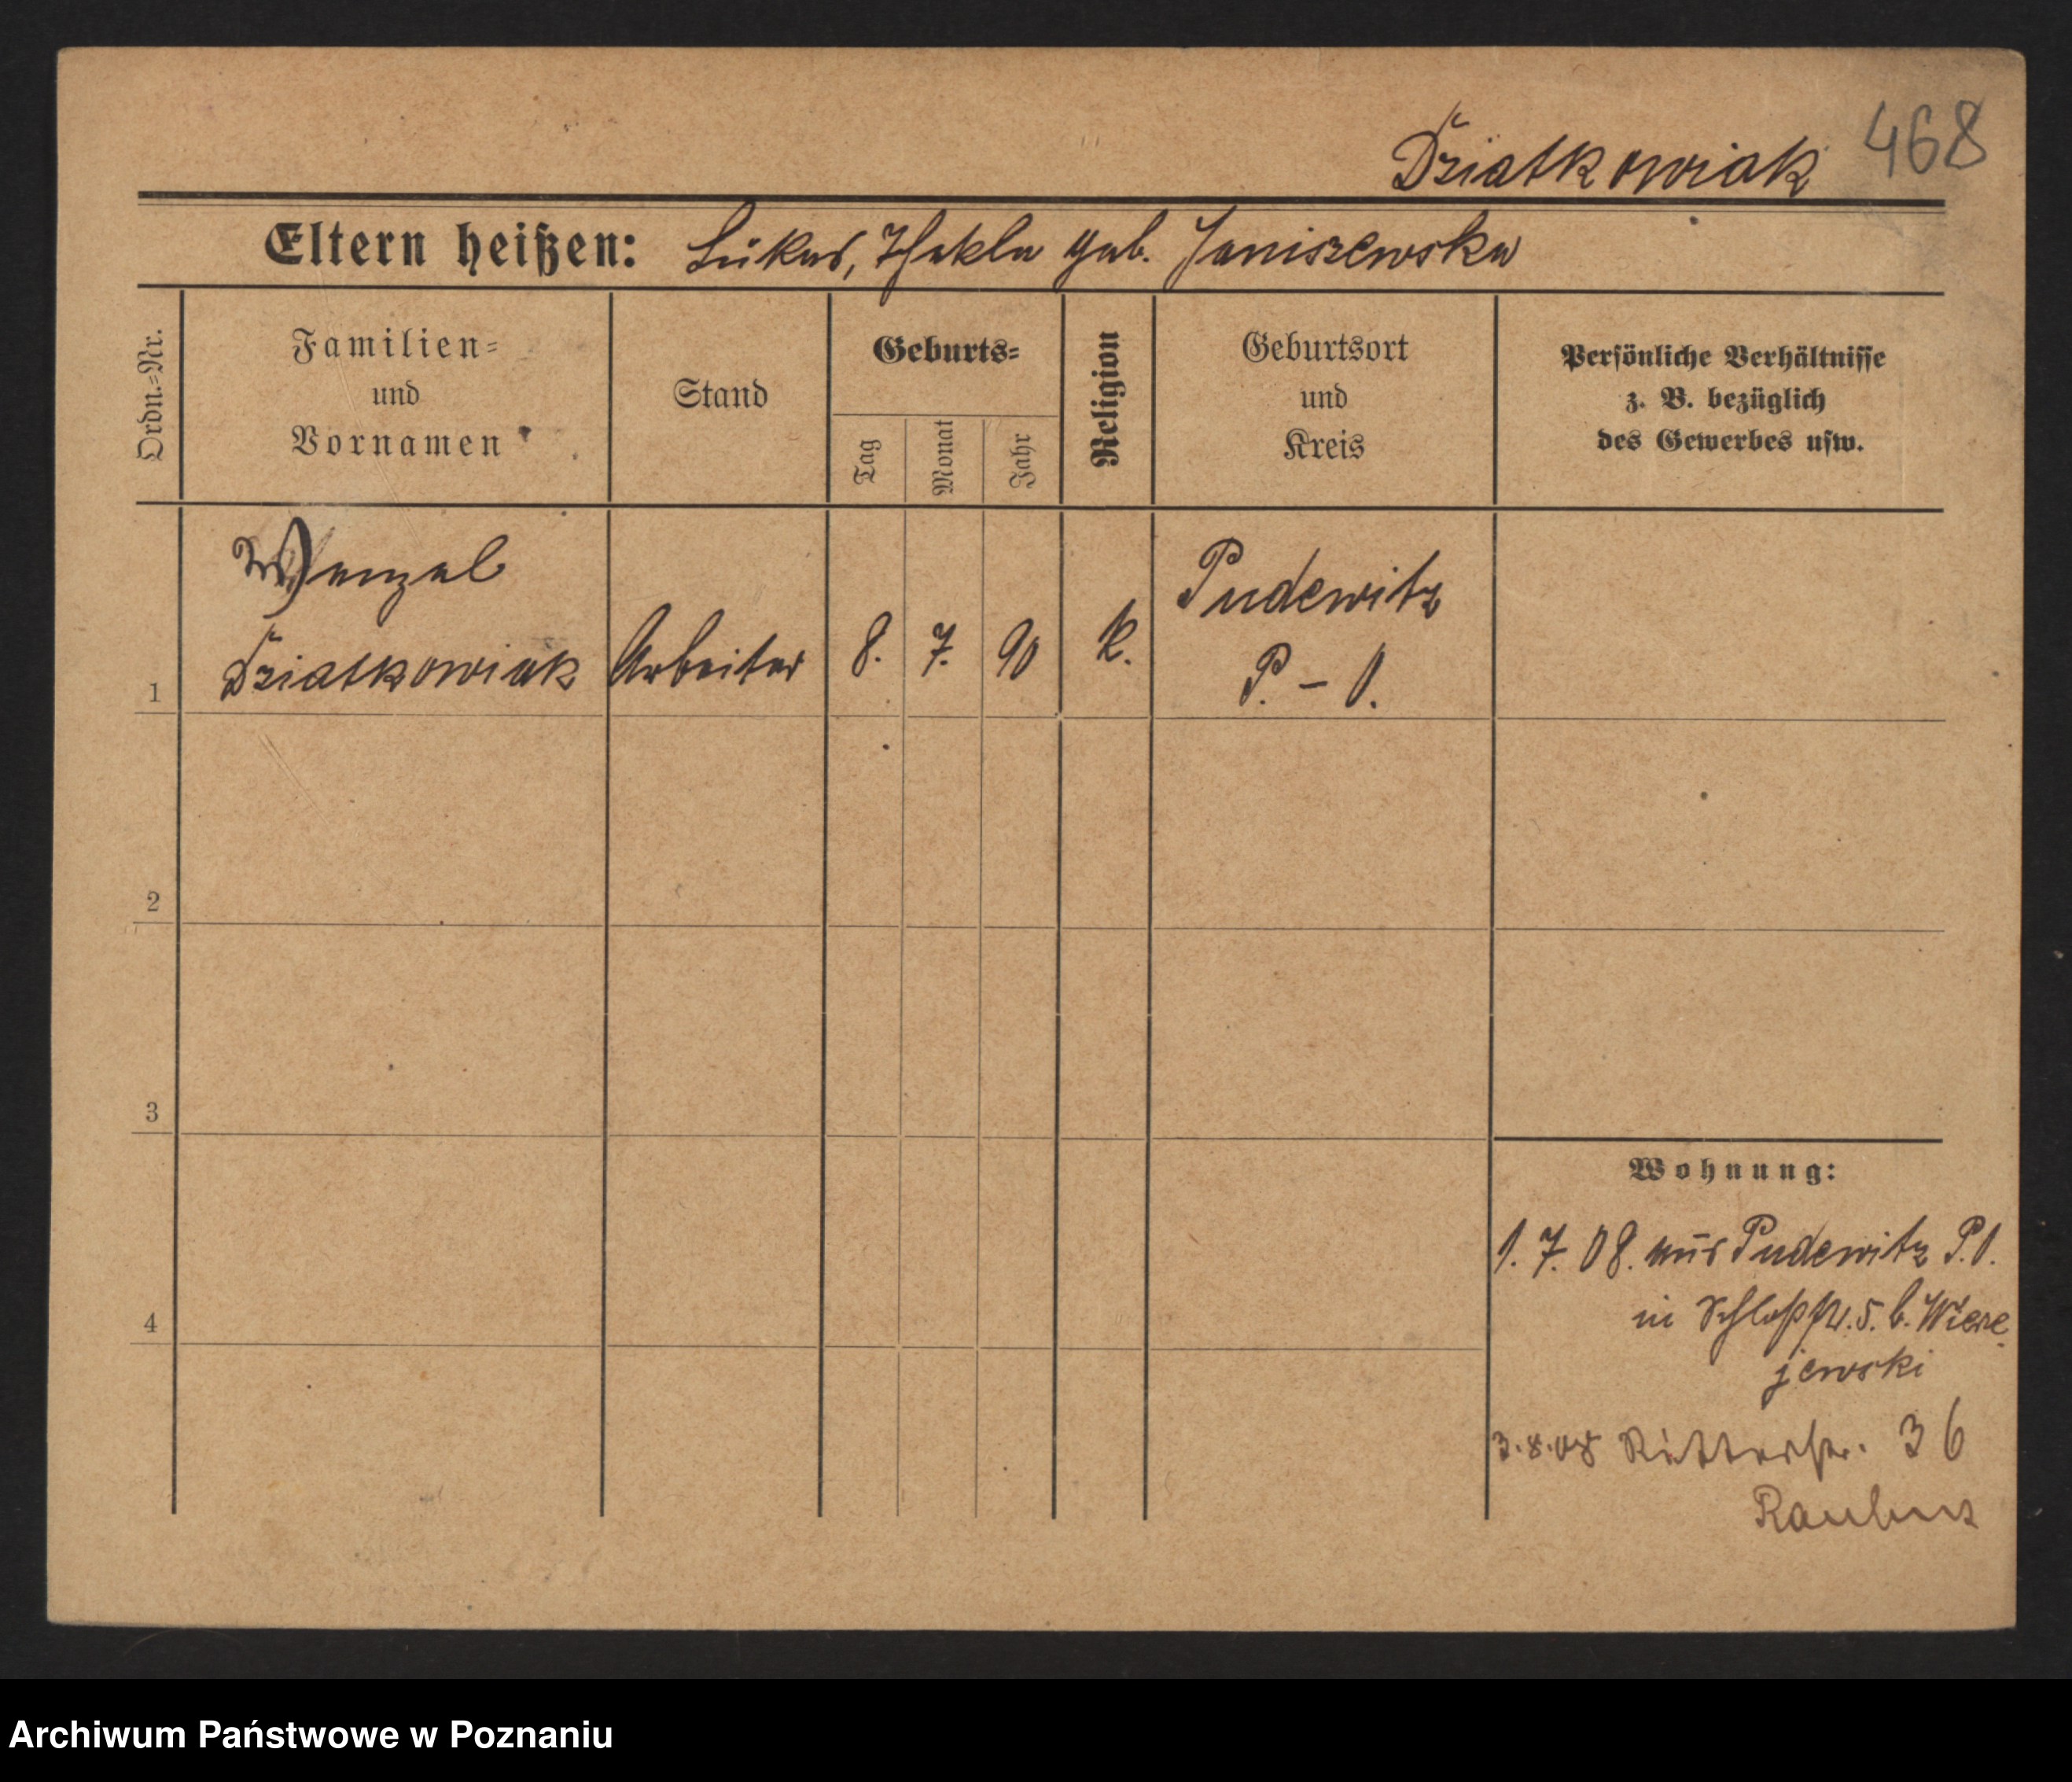 Dziatkowiak 468
Eltern heißen: Lukas, Thekla geb. Janiszewska
Ordn.-Nr.
Familien-
und
Vornamen
Stand
Geburts-
Tag
Monat
Jahr
Religion
Geburtsort
und
Kreis
Persönliche Verhältnisse
z. B. bezüglich
des Gewerbes usw.
Wenzel
1 Dziatkowiak Arbeiter 8. 7. 90 k.
Pudewitz
P. - O.
2
3
4
Wohnung:
1. 7. 08. aus Pudewitz P.O.
in Schloßstr. 5. b. Wiere
jewski
3.8.08 Ritterstr. 36
Archiwum Państwowe w Poznaniu